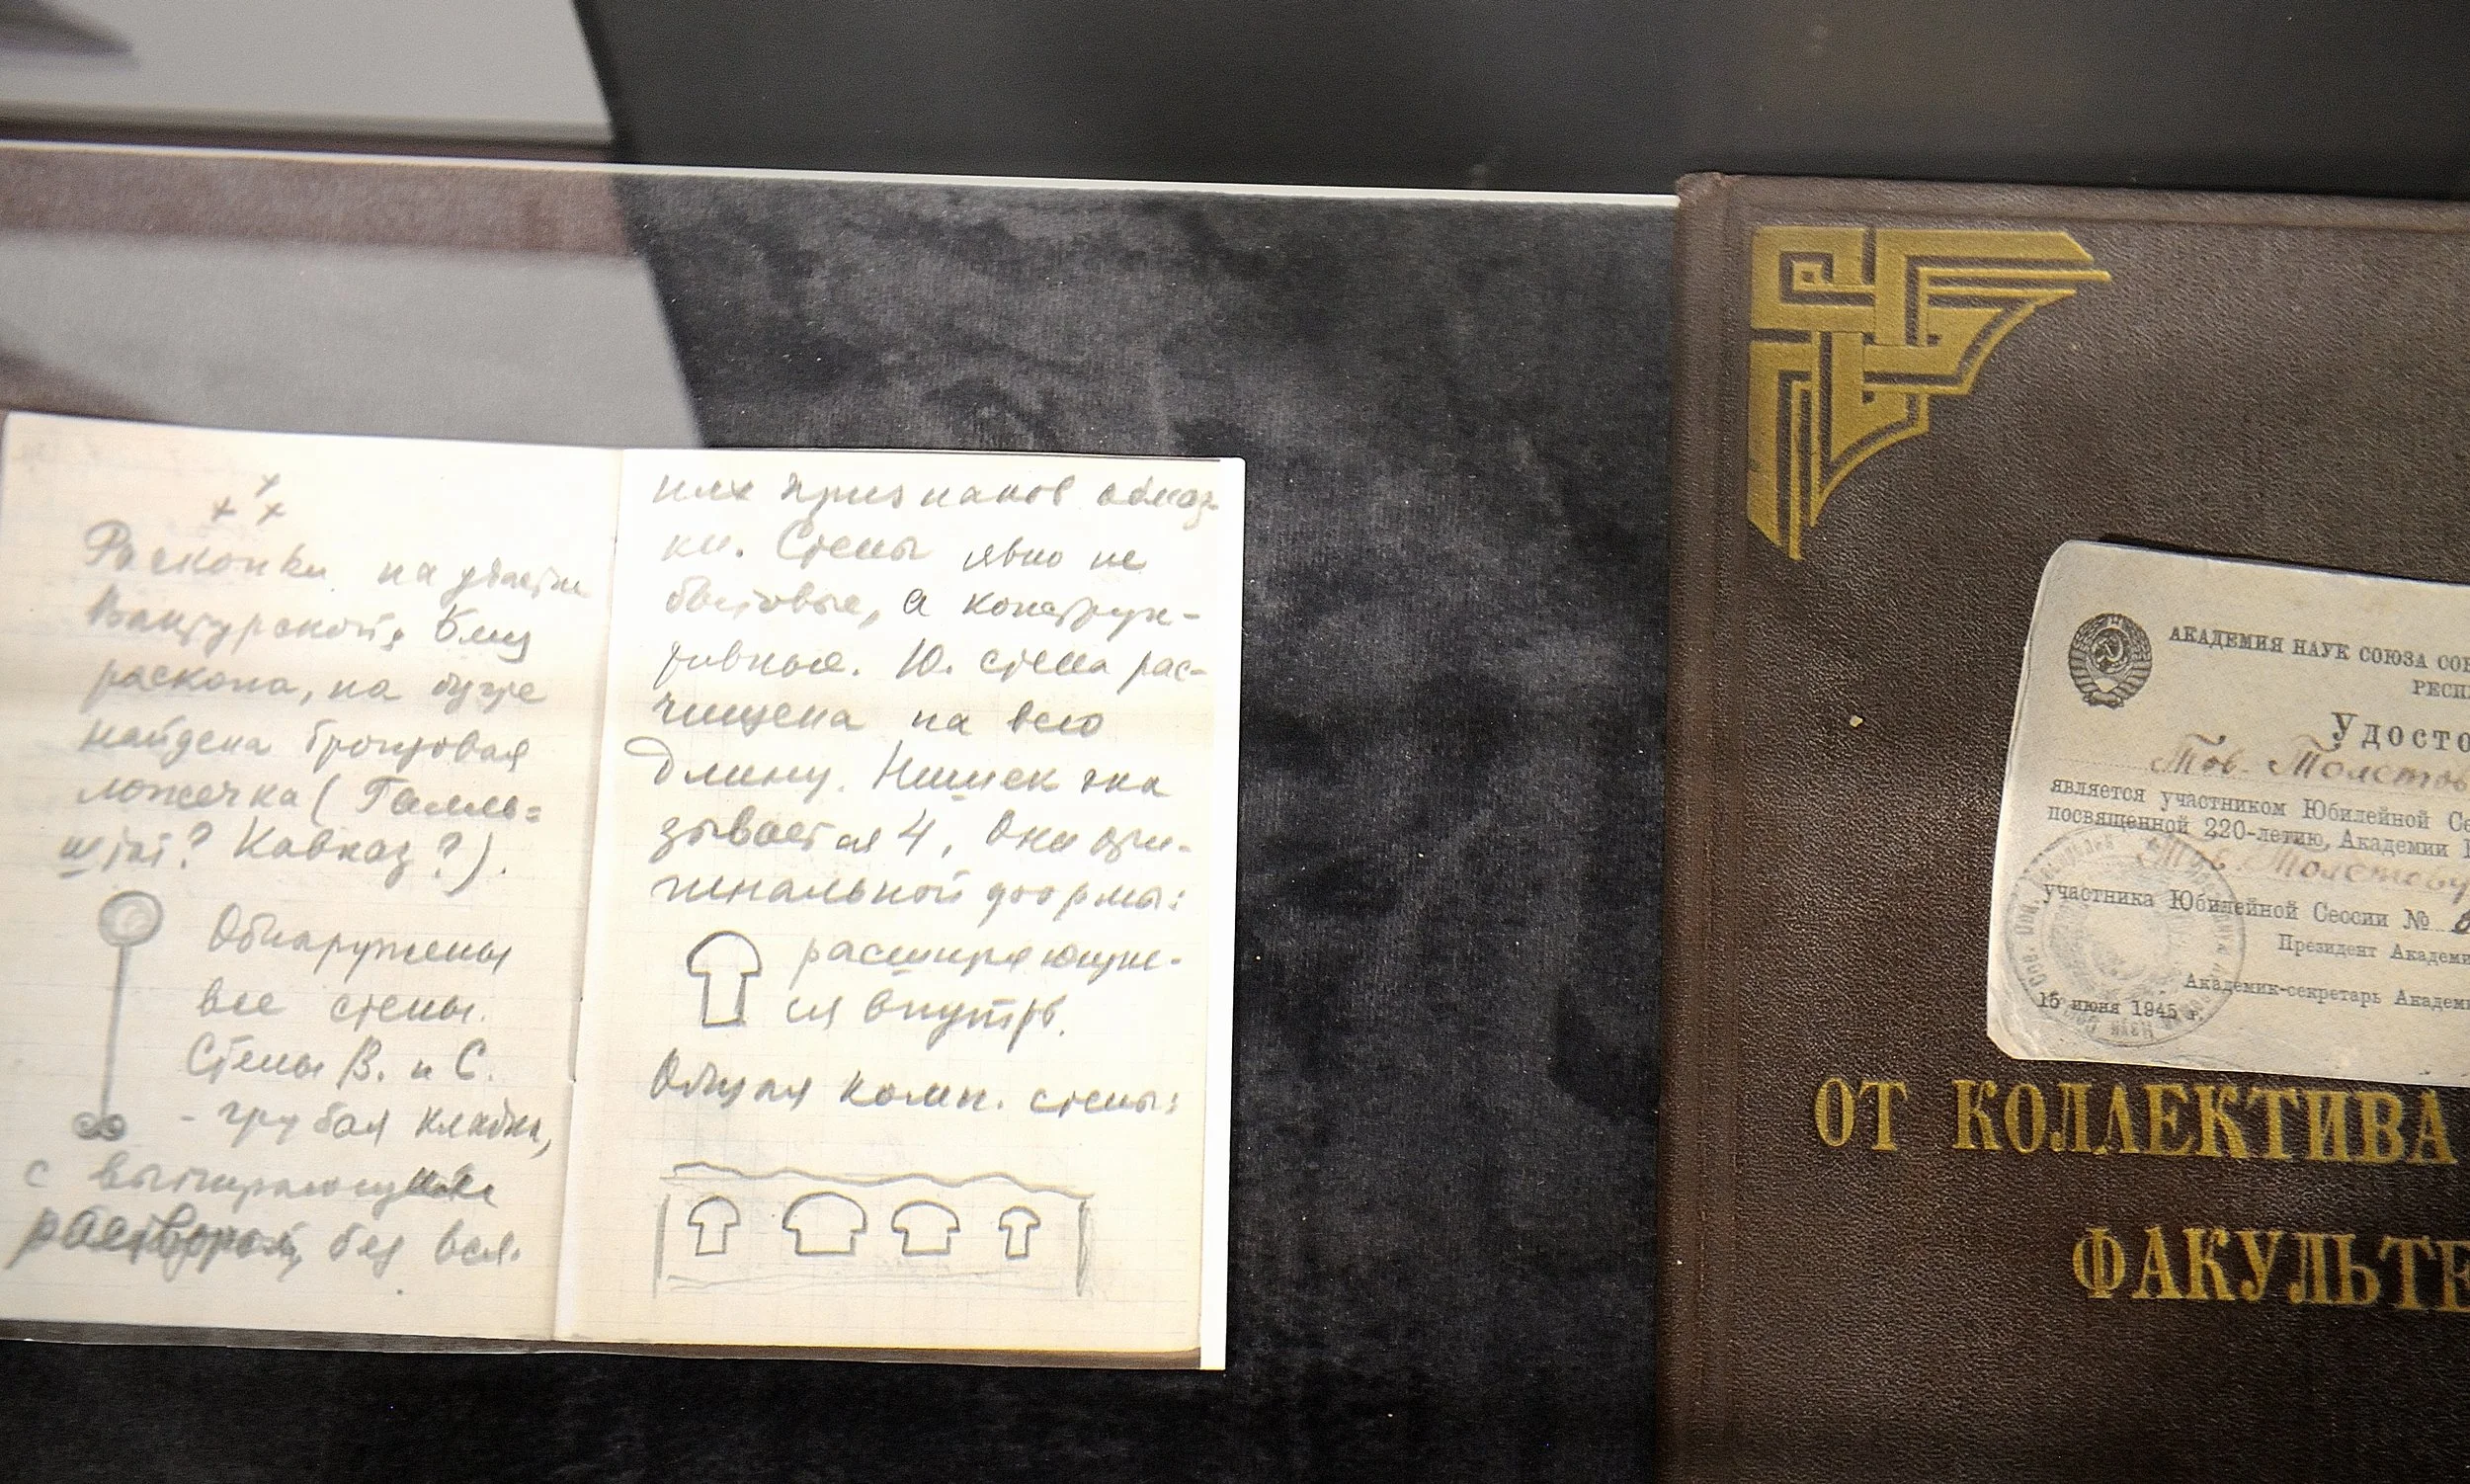 Раскопки на участке
Вактурской, близ
раскопа, на бугре
найдена бронзовая
ложечка (Галль-
штат? Кавказ?).
Обнаружены
все стены.
Стены В. и С.
- грубая кладка,
с выпирающим
раствором, без вся-
ких признаков обмаз-
ки. Стены явно не
бытовые, а конструк-
тивные. Ю. стена рас-
чищена на всю
длину. Нишек ока
зывается 4, Они ори-
гинальной формы:
расширяющие-
ся внутрь.
Общая комп. стены:
АКАДЕМИЯ НАУК СОЮЗА СОВ
РЕСП
УДОСТО
Тов. Толстов
является участником Юбилейной Се
посвященной 220-летию, Академии Н
Тов. Толстову
участника Юбилейной Сессии №
Президент Академи
Академик-секретарь Академи
15 июня 1945 г.
ОТ КОЛЛЕКТИВА
ФАКУЛЬТЕ